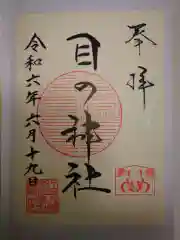 奉拝
目の神社
令和六年六月十九日